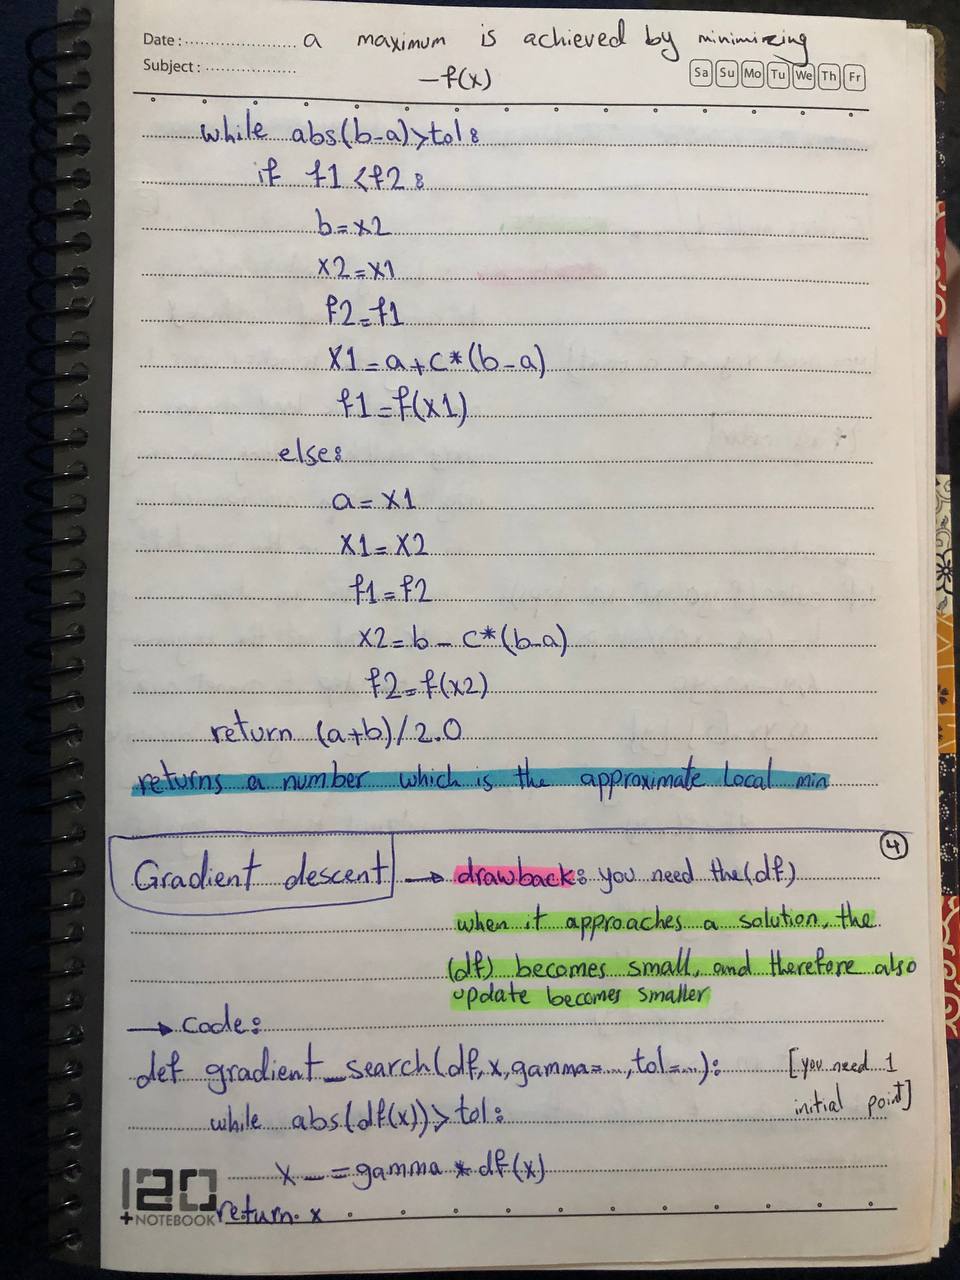 Date:..................... a maximum is achieved by minimizing
Subject:.................. -f(x) Sa Su Mo Tu We Th Fr
while abs(b-a)>tol:
if f1<f2:
b=x2
x2=x1
f2=f1
x1=a+c*(b-a)
f1=f(x1)
else:
a=x1
x1=x2
f1=f2
x2=b-c*(b-a)
f2=f(x2)
return (a+b)/2.0
returns a number which is the approximate local min
4
Gradient descent → drawback: you need the (df)
when it approaches a solution, the
(df) becomes small, and therefore also
update becomes smaller
→ code:
def gradient_search(df,x,gamma=...,tol=...): [you need 1
initial point]
while abs(df(x))>tol:
x -= gamma * df(x)
return x
120
+NOTEBOOK